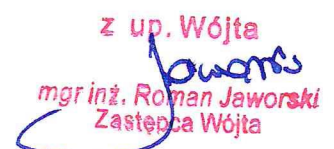 z up. Wójta
Jaworski
mgr inż. Roman Jaworski
Zastępca Wójta